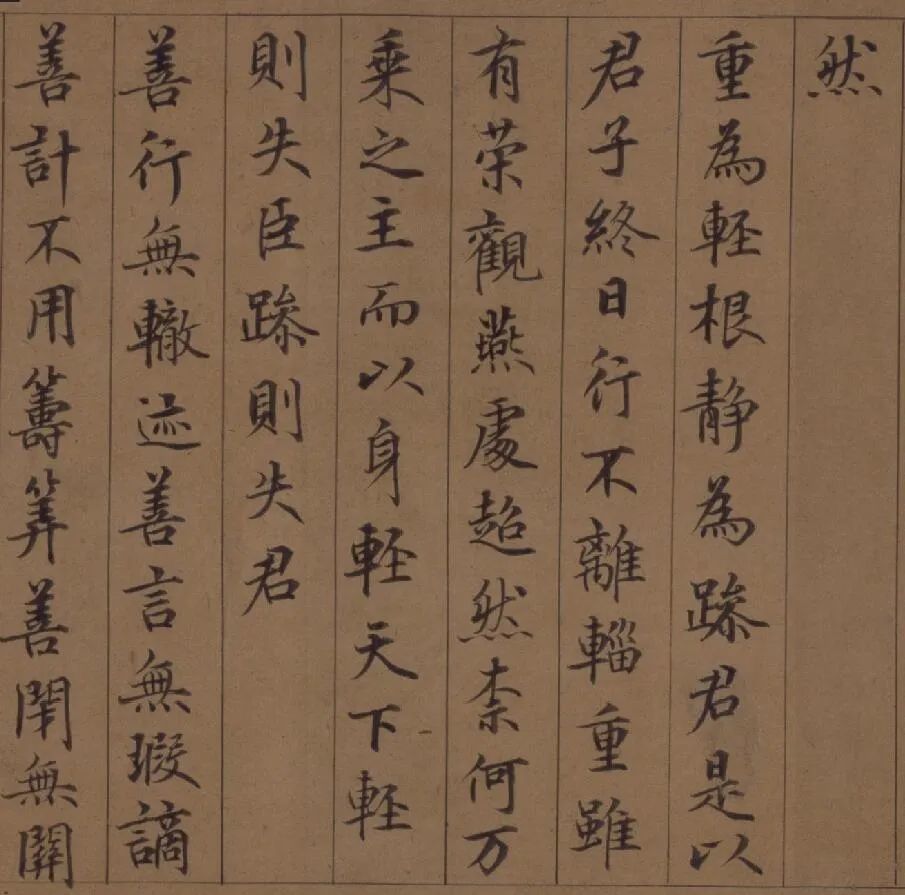 然
重為軽根静為躁君是以
君子終日行不離輜重雖
有荣觀燕處超然柰何万
乗之主而以身軽天下軽
則失臣躁則失君
善行無轍迹善言無瑕謫
善計不用籌筭善閇無關